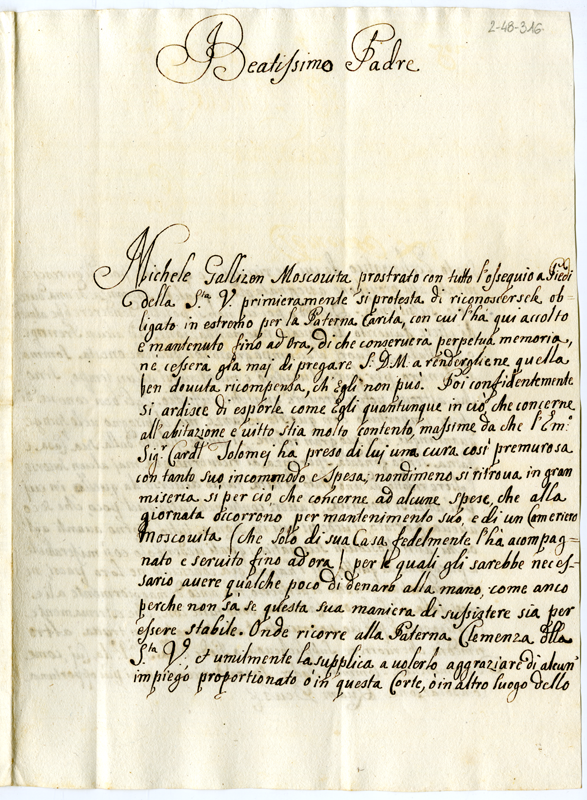 2-48-316
Beatissimo Padre
Michele Gallizen Moscovita prostrato con tutto l'ossequio a Piedi
della S.ta V. primieramente si protesta di riconoscersele ob=
ligato in estremo per la Paterna Carità, con cui l'hà qui accolto
e mantenuto fino ad'Ora, di che conseruerà perpetua memoria,
nè cesserà già maj di pregare S. D. M. a rendergliene quella
ben dovuta ricompensa, ch'Egli non può. Poi confidentemente
si ardisce di esporle come Egli quantunque in ciò, che concerne
all'abitazione e uitto stia molto contento, massime da che l'Em:
Sig.r Card.l Tolomej ha preso di luj una cura così premurosa
con tanto suo incommodo e spesa; nondimeno si ritroua in gran
miseria si per ciò che concerne ad alcune spese, che alla
giornata occorrono per mantenimento suo, e di un Cameriere
Moscouita (che solo di sua Casa fedelmente l'hà acompag=
nato e seruito fino ad'ora) per le quali gli sarebbe neces=
sario auere qualche poco di denaro alla mano, come anco
perche non sà se questa sua maniera di sussistere sia per
essere stabile. Onde ricorre alla Paterna Clemenza della
S.ta V., et umilmente la supplica a uolerlo aggraziare di alcun'
impiego proportionato ò in questa Corte, ò in altro luogo dello